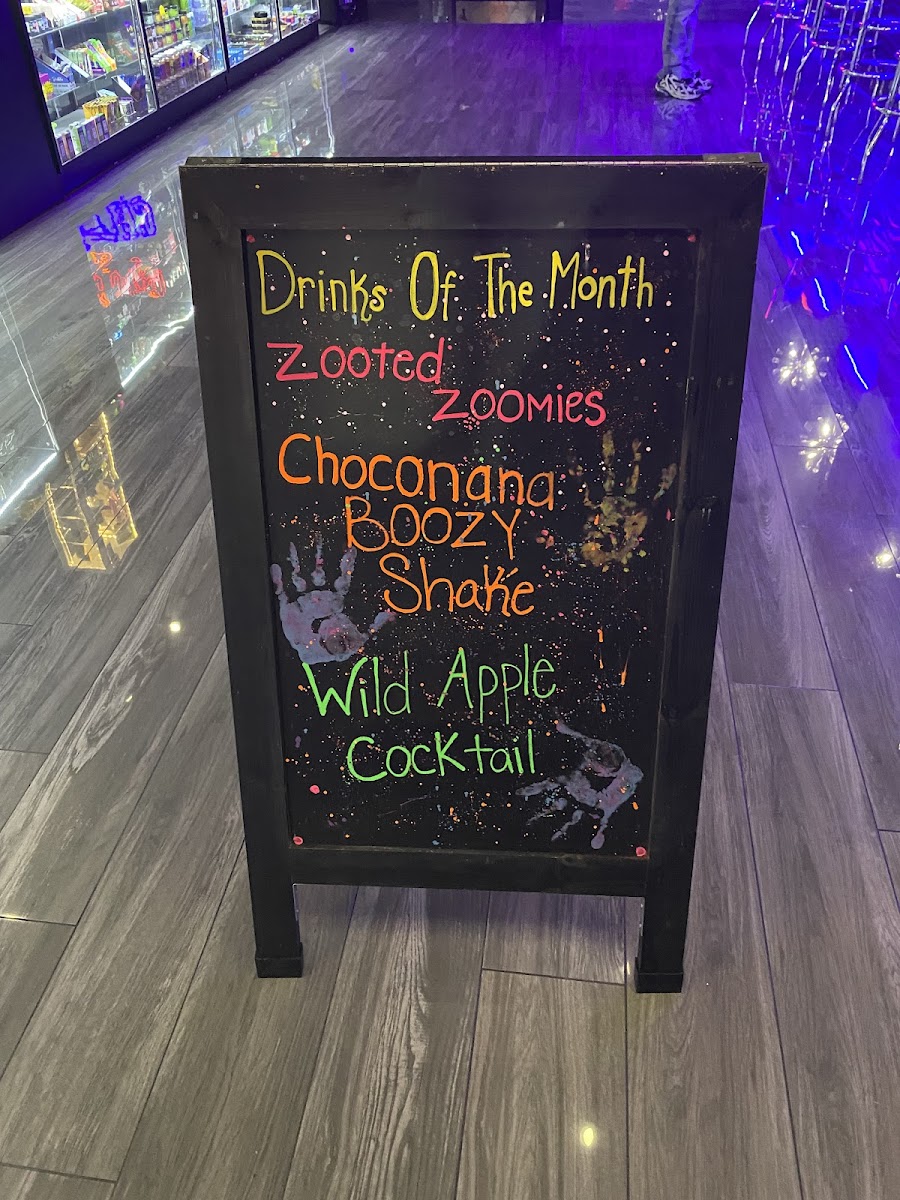 Drinks Of The Month
Zooted
Zoomies
Choconana
Boozy
Shake
Wild Apple
Cocktail